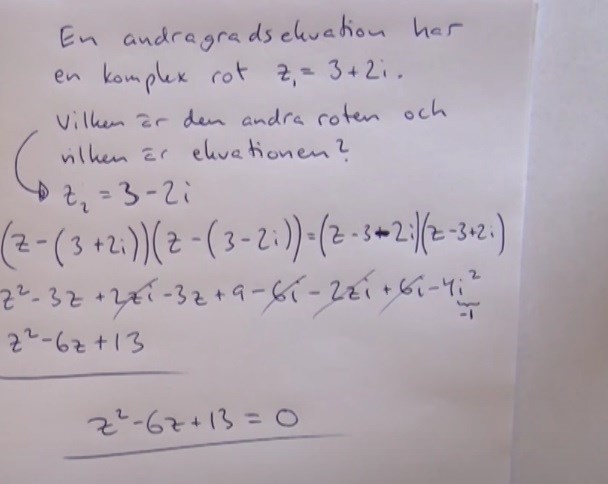 En andragradsekvation har
en komplex rot z₁ = 3+2i.
Vilken är den andra roten och
vilken är ekvationen?
z₂ = 3-2i
(z-(3+2i))(z-(3-2i))=(z-3-2i)(z-3+2i)
z²-3z+2zi-3z+9-6i-2zi+6i-4i²
-1
z²-6z+13
z²-6z+13 = 0